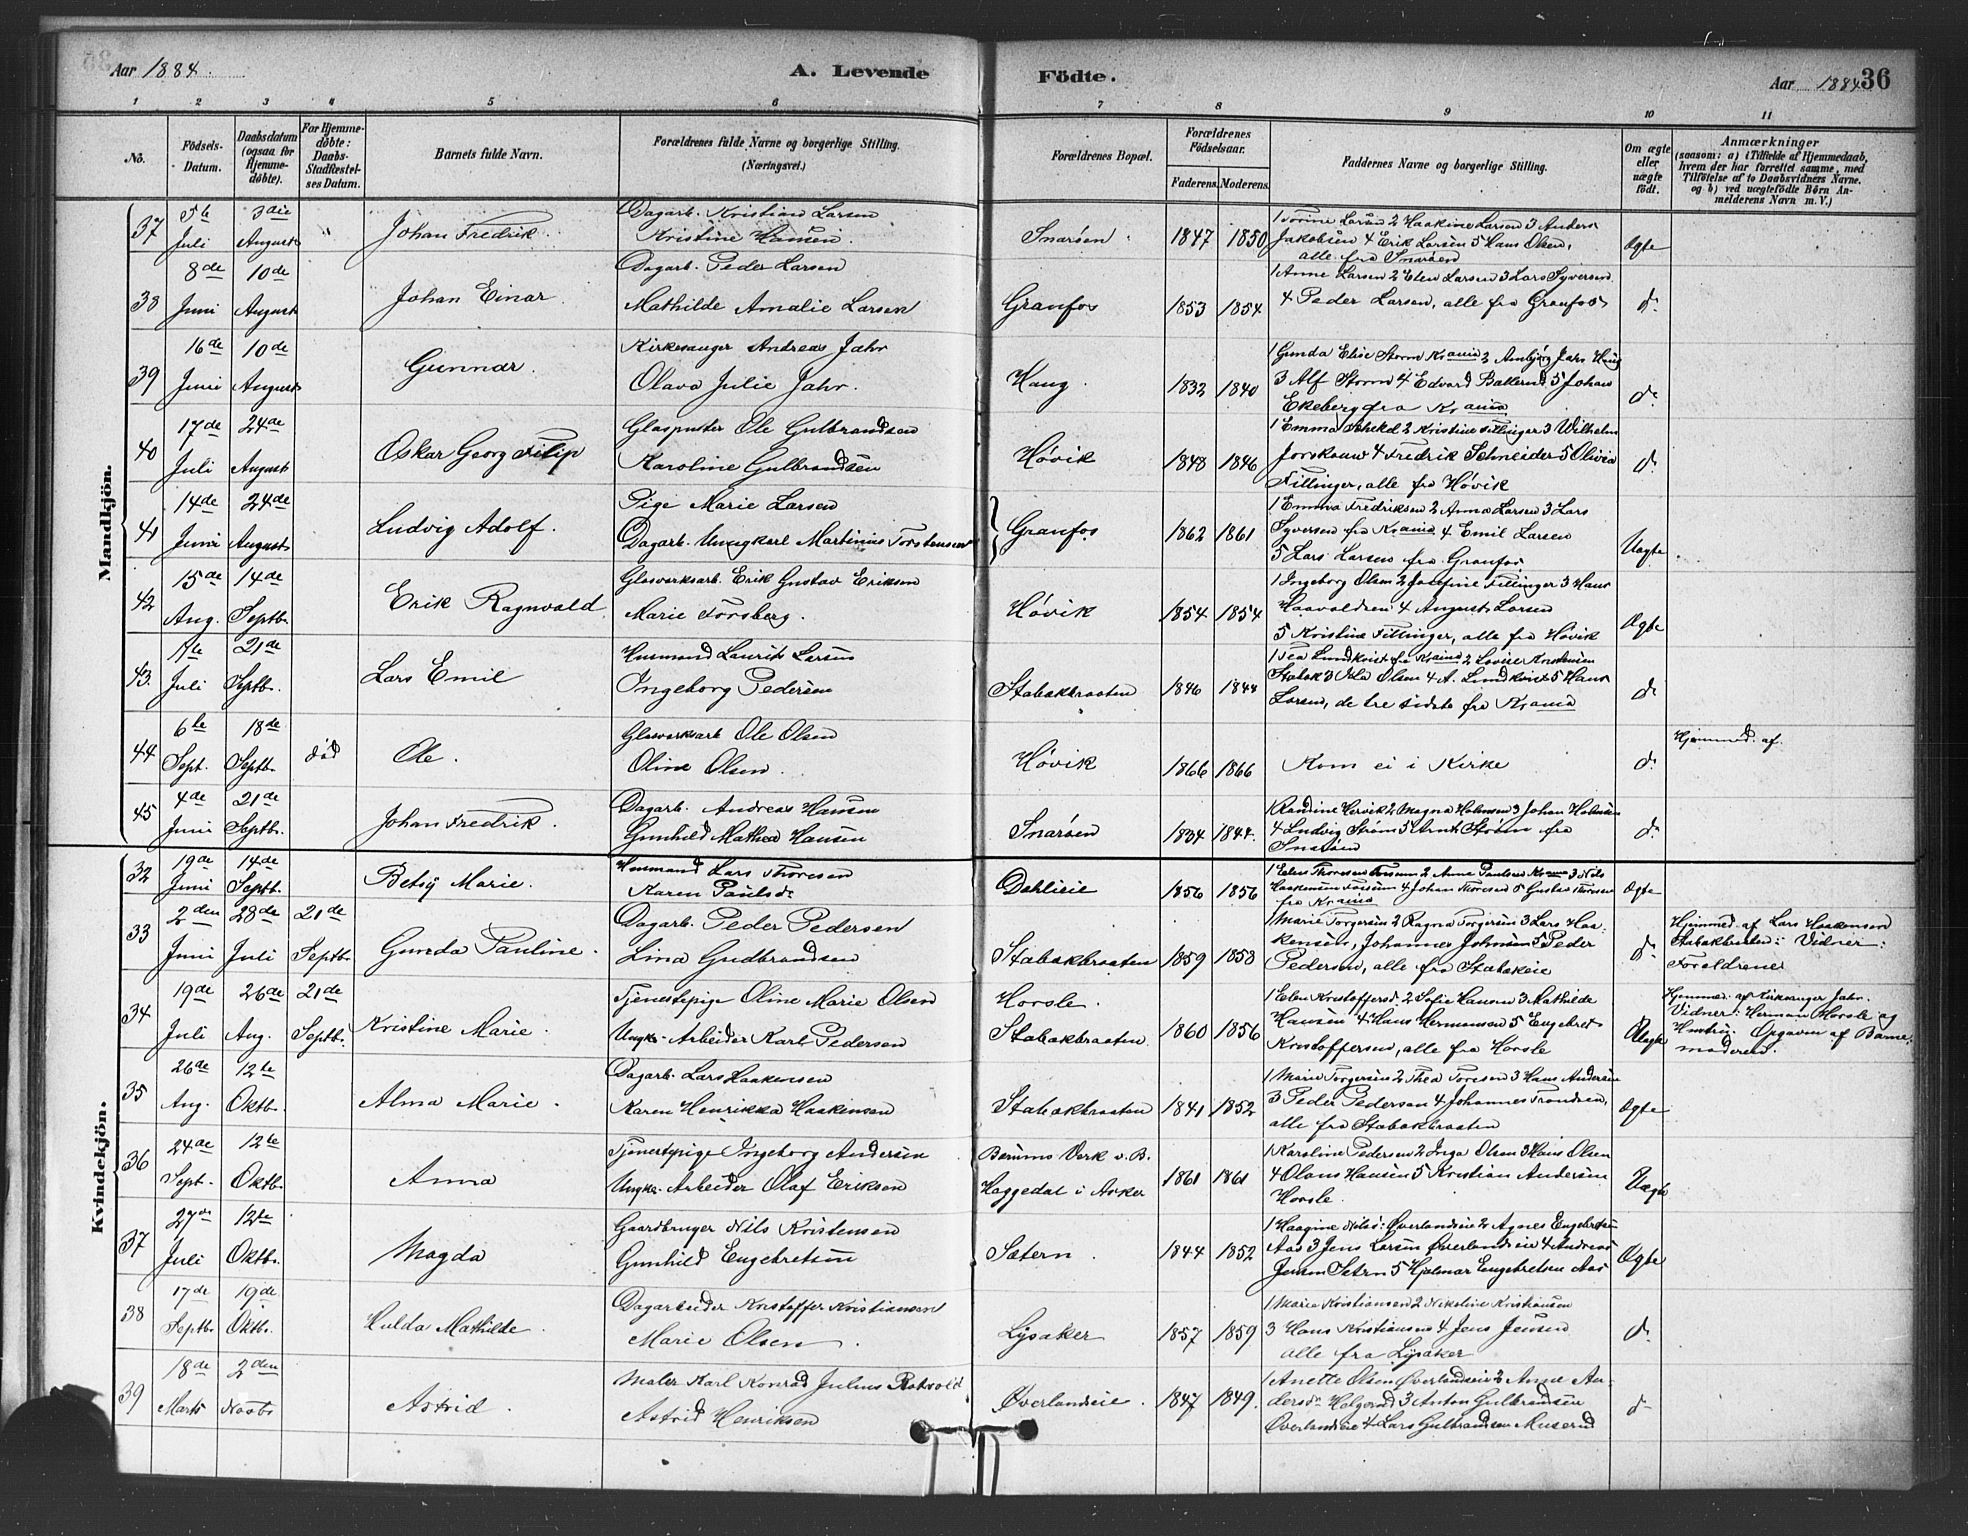 Aar 1884.
A. Levende
Födte.
Aar 1884 36
1 2 3 4 5 6 7 8 9 10 11
No.
Födsels-Datum.
Daabsdatum (ogsaa for Hjemmedöbte).
For Hjemmedöbte: Daabs-Stadfæstelses Datum.
Barnets fulde Navn.
Forældrenes fulde Navne og borgerlige Stilling. (Næringsvei.)
Forældrenes Bopæl.
Forældrenes Födselsaar.
Faderens. Moderens.
Faddernes Navne og borgerlige Stilling.
Om ægte eller uægte födt.
Anmærkninger
(saasom: a) i Tilfælde af Hjemmedaab, hvem der har forrettet samme, med Tilföielse af to Daabsvidners Navne, og b) ved uægtefödte Börn Anmelderens Navn m. V.)
Mandkjön.
37 5te Juli 3die August " Johan Fredrik. Dagarb. Kristian Larsen
Kristine Hansen. Snarøen 1847 1850 1 Torine Larsen 2 Haakine Larsen 3 Anders
Jakobsen 4 Erik Larsen 5 Hans Olsen,
alle fra Snarøen Ægte
38 8de Juni 10de August Johan Einar. Dagarb. Peder Larsen
Mathilde Amalie Larsen Granfos 1853 1854 1 Anne Larsen 2 Elen Larsen 3 Lars Syversen
4 Peder Larsen, alle fra Granfos do
39 16de Juni 10de August Gunnar. Kirkesanger Andreas Jahr
Olava Julie Jahr. Haug. 1832 1840 1 Gunda Elise Storm Krania 2 Ambjørg Jahr Haug
3 Alf Storm 4 Edvard Ballerud 5 Johan
Ekeberg fra Krania do
40 17de Juli 24de August Oskar Georg Filip Glaspuster Ole Gulbrandsen
Karoline Gulbrandsen Høvik 1848 1846 1 Emma 2 Kristine Fillinger 3 Wilhelm
4 Fredrik Schneider 5 Olivia
Fillinger, alle fra Høvik do
41 14de Juni 24de August Ludvig Adolf. Pige Marie Larsen
Dagarb. Ungkarl Martinius Torstensen Granfos 1862 1861 1 Emma Fredriksen 2 Anna Larsen 3 Lars
Syversen fra Krania 4 Emil Larsen
5 Lars Larsen fra Granfos Uægte
42 15de Aug. 14de Septbr. Erik Ragnvald Glasverksarb. Erik Gustav Eriksen
Marie Forsberg. Høvik 1854. 1854 1 Ingeborg Olsen 2 Josefine Fillinger 3 Hans
Haavaldsen 4 August Larsen
5 Kristine Fillinger, alle fra Høvik Ægte
43. 1ste Juli 21de Septbr. Lars Emil Husmand Laurits Larsen
Ingeborg Pedersen Stabakbraaten 1846 1844 1 Tea Lundkvist fra Krania 2 Lovise Kristensen
Stabak 3 Olsen 4 A. Lundkvist 5 Hans
Larsen, de tre sidste fra Krania do
44 6te Sept. 18de Septbr. död Ole. Glasverksarb Ole Olsen
Oline Olsen. Høvik 1866 1866 Kom ei i Kirke do Hjemmed. af.
45 4de Juni 21de Septbr. Johan Fredrik. Dagarb. Andreas Hansen
Gunhild Mathea Hansen Snarøen 1834 1844. 1 Randine Hervik 2 Magna Halvorsen 3 Johan Halvorsen
4 Ludvig Strøm 5 Arnt Strøm fra
Snarøen do
Kvindekjön.
32 19de Juni 14de Septbr. Betsy Marie. Husmand Lars Thoresen
Karen Paulsdr Dehlieie 1856 1856 1 Elen Thoresen Fossum 2 Anne Paulsen Krania 3 Nils
Haakensen Fossum 4 Johan Thoresen 5 Gustav Thoresen
fra Krania Ægte
33 2den Juni 28de Juli 21de Septbr. Gunda Pauline. Dagarb. Peder Pedersen
Lina Gudbrandsen Stabakbraaten 1859 1858 1 Marie Torgersen 2 Ragna Torgersen 3 Lars Haa-
kensen, Johannes Johnsen 5 Peder
Pedersen, alle fra Stabakeie do Hjemmed. af Lars Haakensen
Stabakbraaten: Vidner:
Forældrene
34 19de Juli 26de Aug. 21de Septbr. Kristine Marie. Tjenestepige Oline Marie Olsen
Ungk. Arbeider Karl Pedersen Horsle.
Stabakbraaten. 1860 1856 1 Elen Kristoffersd. 2 Sofie Hansen 3 Mathilde
Hansen 4 Hans Hermansen 5 Engebret
Kristoffersen, alle fra Horsle Uægte Hjemmed. af Kirkesanger Jahr.
Vidner: Herman Horsle og
Hustru. Opgaven af Barne-
moderen.
35 26de Aug. 12te Oktbr. Alma Marie. Dagarb. Lars Haakensen
Karen Henrikka Haakensen Stabakbraaten 1841 1852 1 Marie Torgersen 2 Thea Toresen 3 Hans Andersen
3 Peder Pedersen 4 Johannes Trondsen,
alle fra Stabakbraaten Ægte
36 24de Sept. 12te Oktbr. Anna Tjenestepige Ingeborg Andersen
Ungk. Arbeider Olaf Eriksen Bærums Verk v. B.
Haggedal i Asker 1861 1861 1 Karoline Pedersen 2 Inga Olsen 3 Hans Olsen
4 Olaus Hansen 5 Kristian Andersen
Horsle. Uægte
37 27de Juli 12te Oktbr. Magda Gaardbruger Nils Kristensen
Gunhild Engebretsen Sætern. 1844 1852 1 Haagine Nilsd: Øverlandseie 2 Agnes Engebretsen
Aas 3 Jens Larsen Øverlandseie 4 Andreas
Jensen Setern 5 Hjalmar Engebretsen Aas Ægte
38 17de Septbr. 19de Oktbr. Hulda Mathilde. Dagarbeider Kristoffer Kristiansen
Marie Olsen. Lysaker 1857 1859 1 Marie Kristiansen 2 Nikoline Kristiansen
3 Hans Kristiansen 4 Jens Jensen
alle fra Lysaker do
39 18de Marts 2den Novbr. Astrid. Maler Karl Konrad Julius Rotvold
Astrid Henriksen Øverlandseie. 1847 1849. 1 Anette Olsen Øverlandseie 2 Anne An-
dersdr Helgerud 3 Anton Gulbrandsen
Øverlandseie 4 Lars Gulbrandsen Muserud do